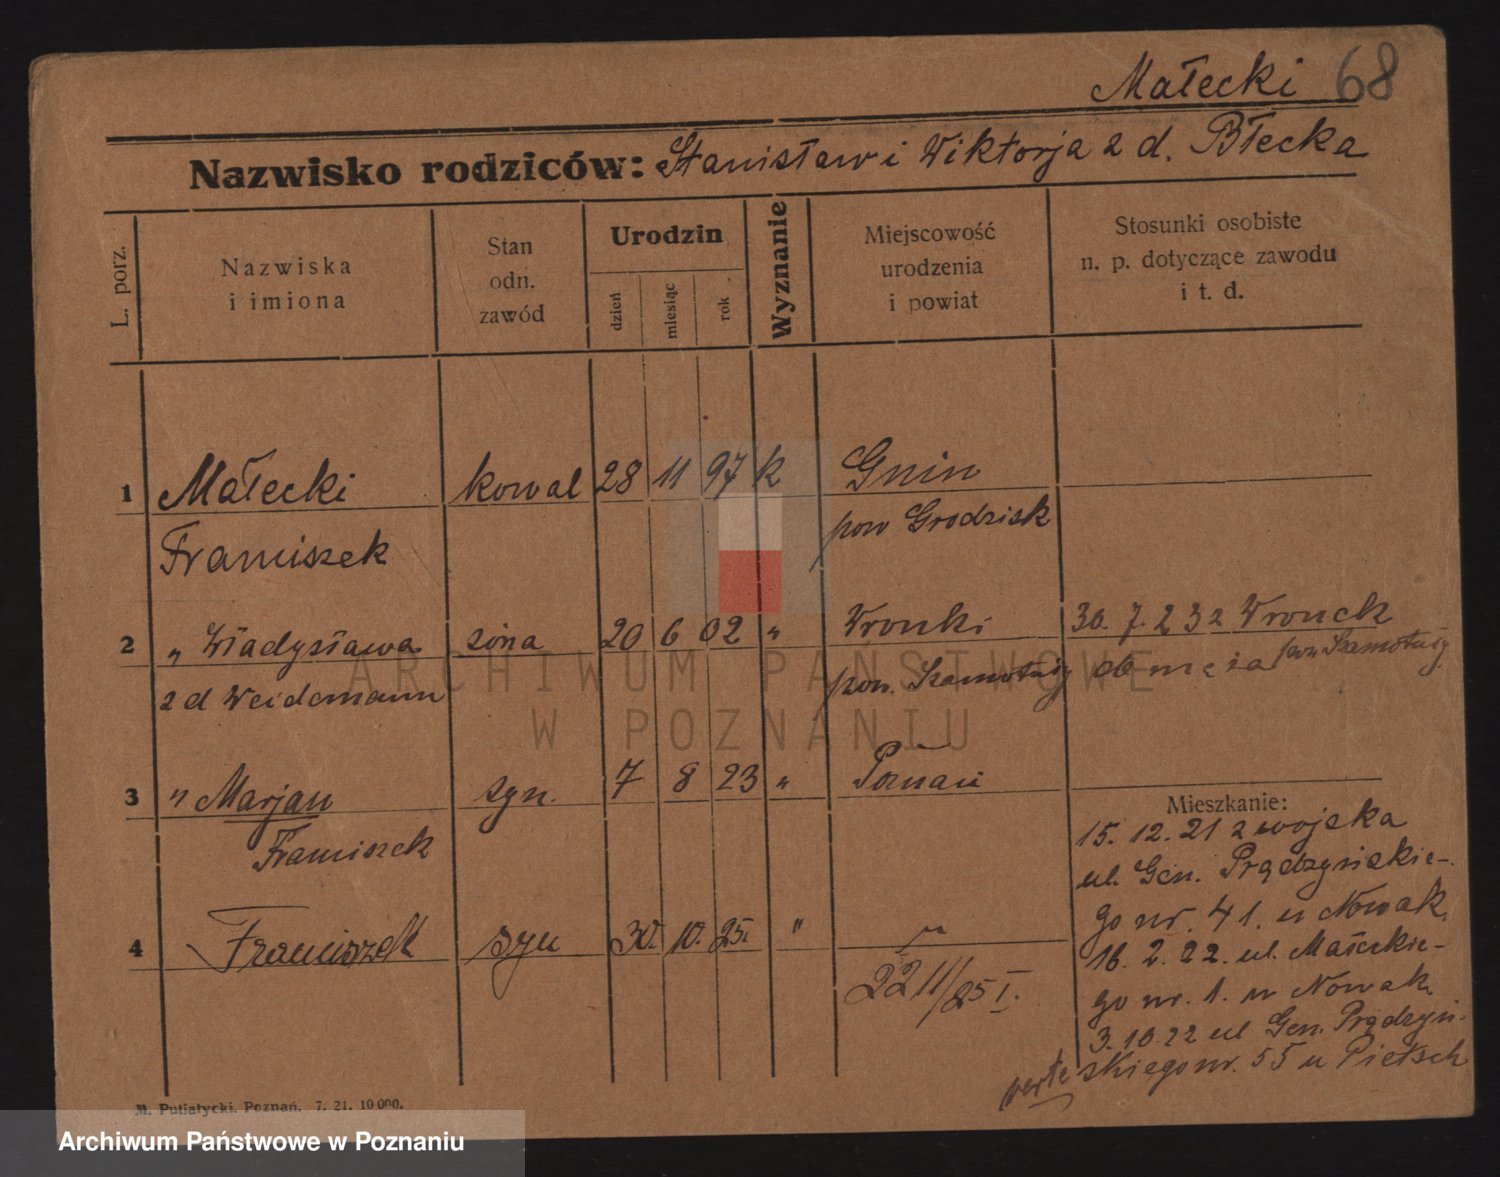 Małecki 68
Nazwisko rodziców: Stanisław i Wiktorja z d. Błecka
L. porz.
Nazwiska
i imiona
Stan
odn.
zawód
Urodzin
dzień
miesiąc
rok
Wyznanie
Miejscowość
urodzenia
i powiat
Stosunki osobiste
n. p. dotyczące zawodu
i t. d.
1 Małecki kowal 28 11 97 k Gnin
Franciszek pow Grodzisk
2 " Władysława żona 20 6 02 " Wronki 30. 7. 23 z Wronek
z d Weidemann pow. Szamotuły od męża pow Szamotuły
3 " Marjan syn. 7 8 23 " Poznań
Franciszek
4 Franciszek syn 30. 10. 25. " "
22 11/25 I.
Mieszkanie:
15. 12. 21 z wojska
ul. Gen. Prądzyńskie-
go nr. 41. u Nowak.
16. 2. 22. ul. Małeckie-
go nr. 1. u Nowak
3. 10. 22 ul Gen. Prądzyń-
skiego nr. 55 u Pietsch
verte
M. Putiatycki. Poznań. 7. 21. 10 000.
ARCHIWUM PAŃSTWOWE
W POZNANIU
Archiwum Państwowe w Poznaniu